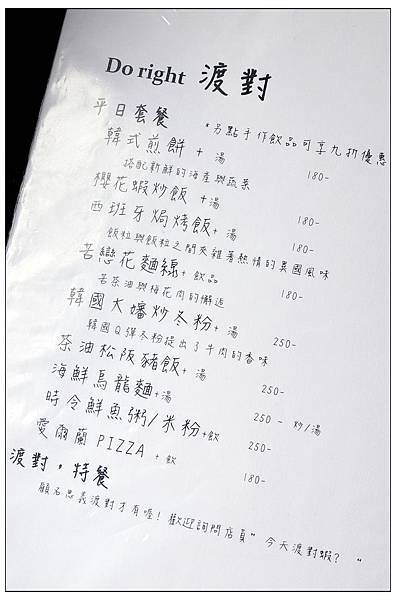 Do right 渡對
平日套餐 *另點手作飲品可享九折優惠
韓式煎餅 + 湯 180-
搭配新鮮的海產與蔬菜
櫻花蝦炒飯 + 湯 180-
西班牙焗烤飯 + 湯 180-
飯粒與飯粒之間夾雜著熱情的異國風味
苦戀花麵線 + 飲品 180-
苦茶油與梅花肉的邂逅
韓國大嬸炒冬粉 + 湯 250-
韓國Q彈冬粉提出了牛肉的香味
茶油松阪豬飯 + 湯 250-
海鮮烏龍麵 + 湯 250 - 炒/湯
時令鮮魚粥/米粉 + 飲 250-
愛爾蘭PIZZA + 飲 180-
渡對，特餐
顧名思義渡對才有喔! 歡迎詢問店員"今天渡對蝦? "